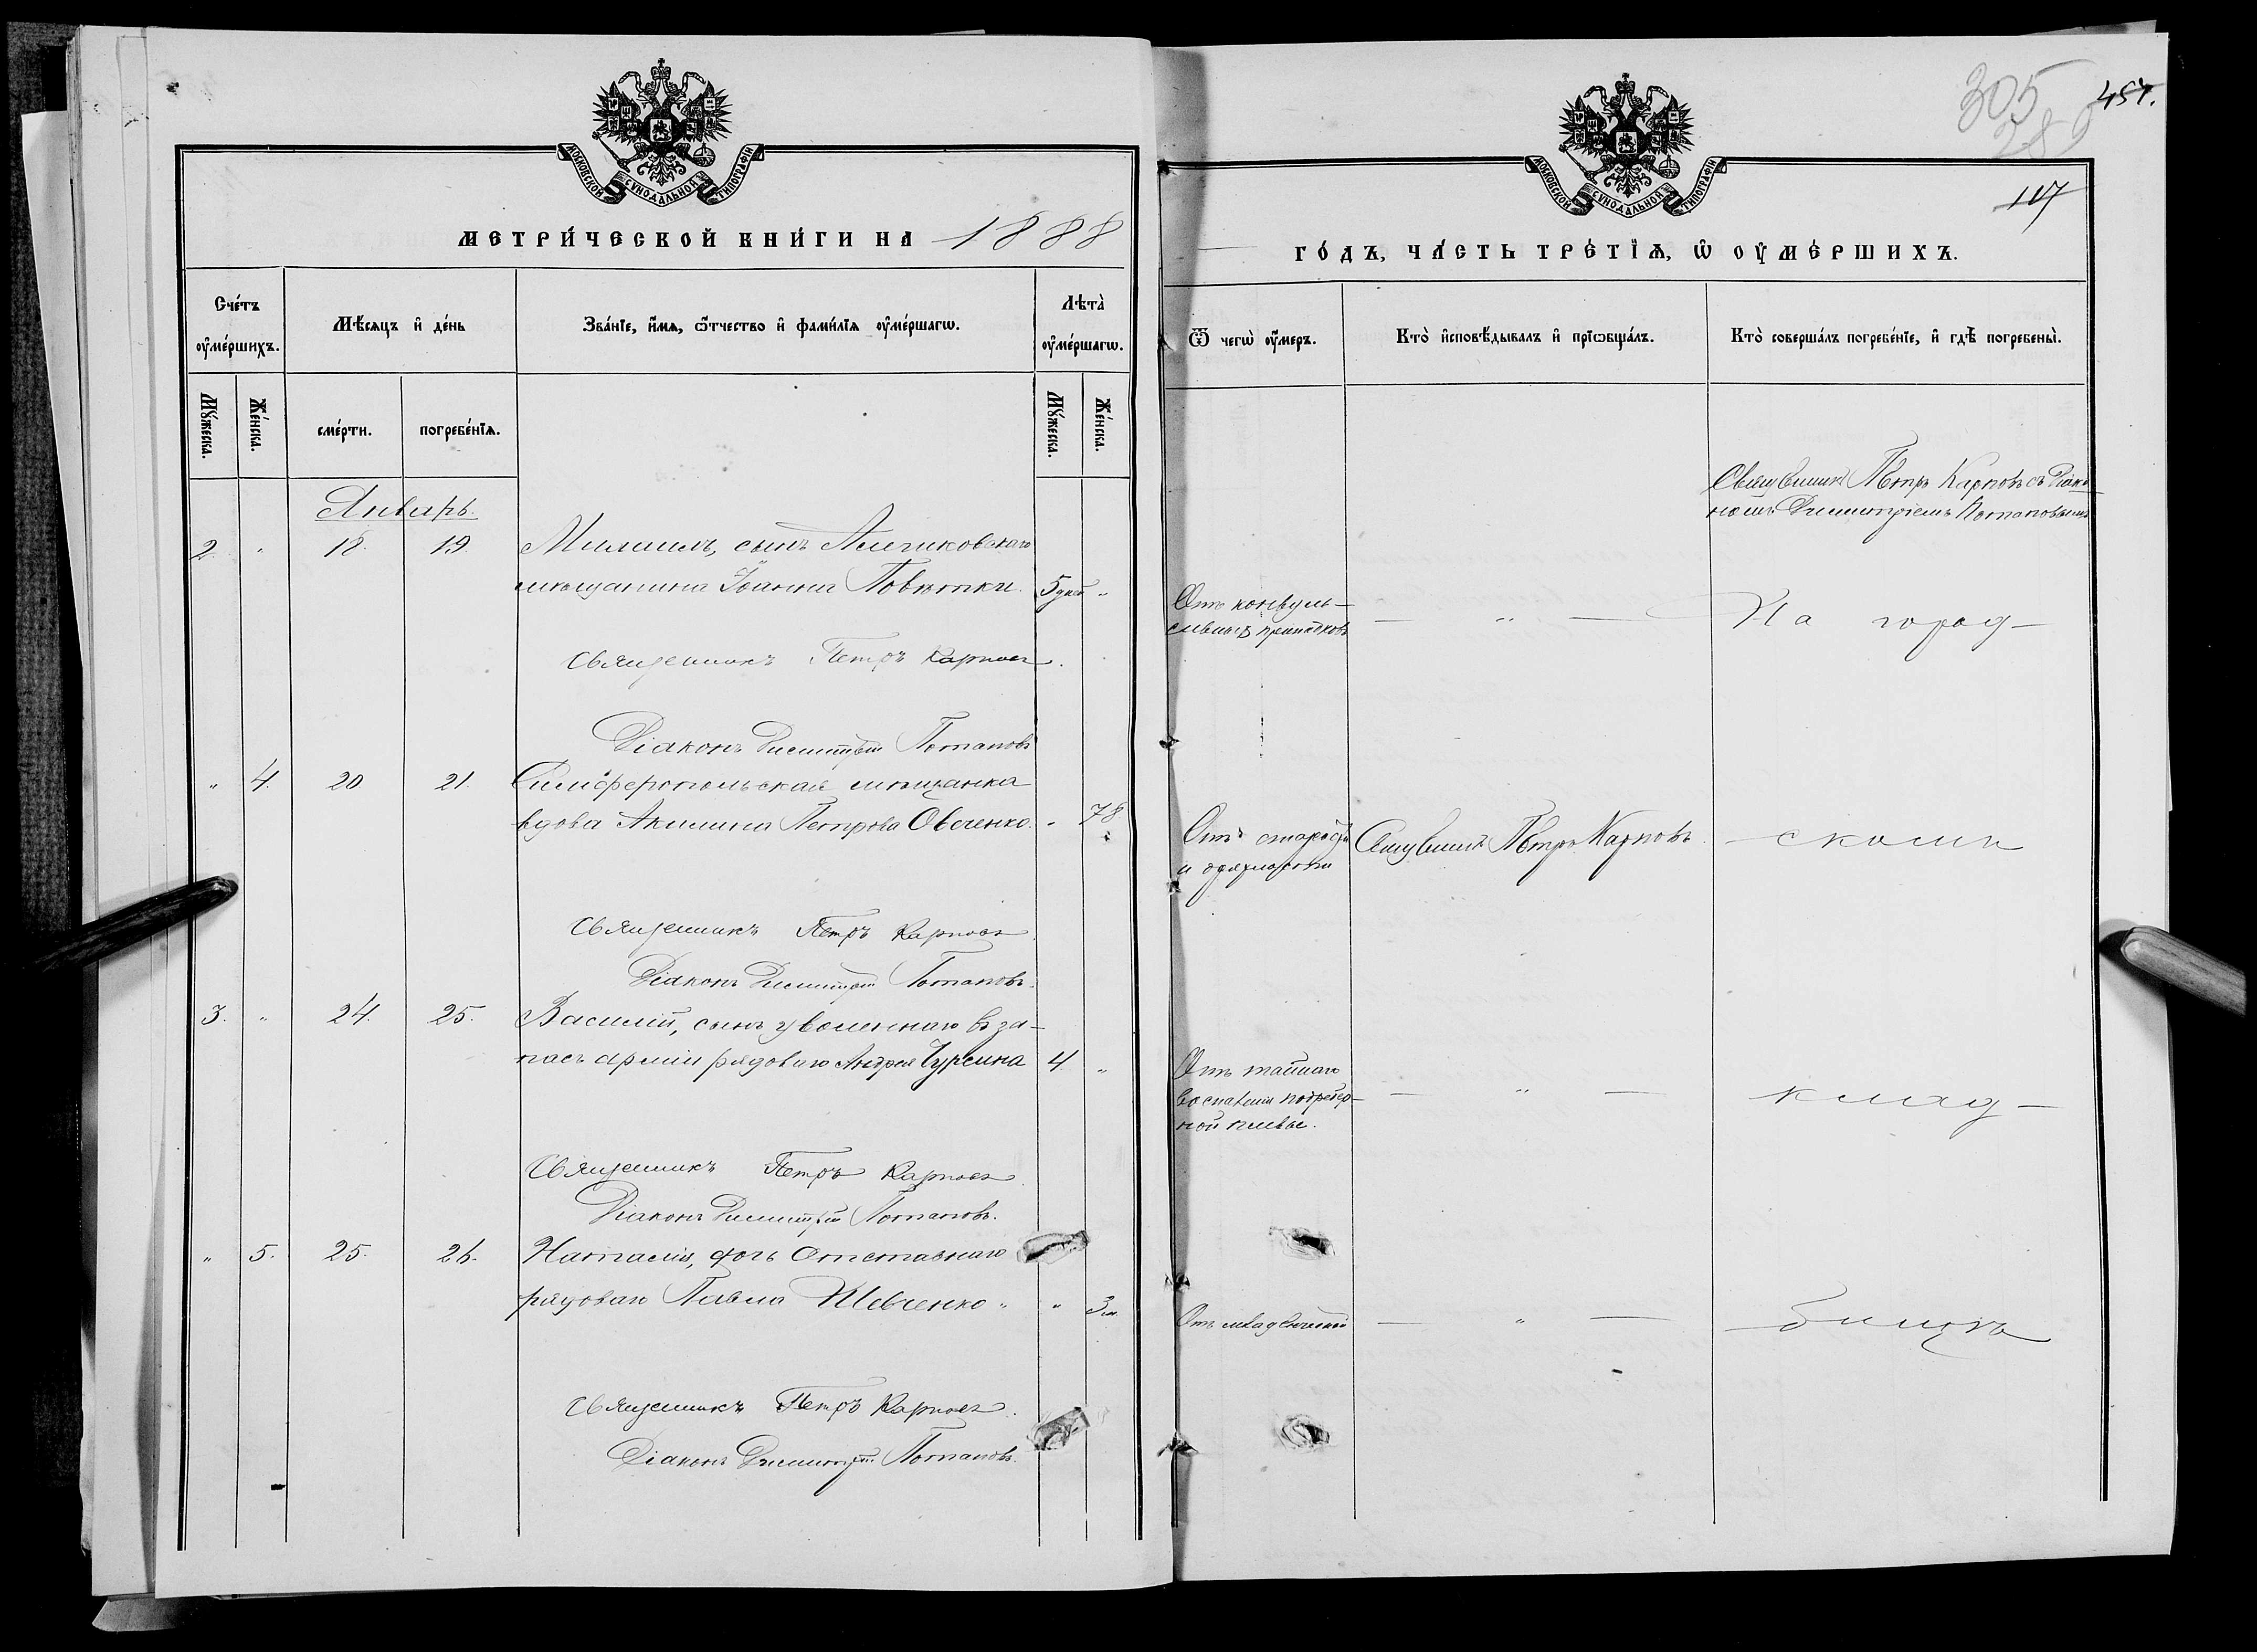 МОСКОВСКОЙ СѴНОДАЛЬНОЙ ТИПОГРАФІИ
МЕТРИ́ЧЕСКОЙ КНИ́ГИ НА 1888
Сче́тъ оу҆ме́ршихъ.
Мѣ́сяцъ и҆ де́нь
Зва́нїе, и҆́мя, ѻ҆́тчество и҆ фами́лїя оу҆ме́ршагѡ.
Лѣта̀ оу҆ме́ршагѡ.
Мꙋ́жеска.
Же́нска.
сме́рти.
погребе́нїѧ.
Мꙋ́жеска.
Же́нска.
Январь.
2. " 18. 19. сынъ
мѣщанина Іоанна Повѣтки. 5 дней "
Священникъ Петръ Карповъ.
Діаконъ Димитрій Потаповъ
" 4. 20 21. Симферопольская мѣщанка
вдова Акилина Петрова Овсченко. " 78
Священникъ Петръ Карповъ
Діаконъ Димитрій Потаповъ.
3. " 24. 25. Василій, сынъ уволеннаго въ за-
пасъ арміи рядового Андрея Чурсина 4 "
Священникъ Петръ Карповъ
Діаконъ Димитрій Потаповъ.
" 5. 25. 26. Наталія, дочь Отставнаго
рядоваго Павла Шевченко. " 3 м.
Священникъ Петръ Карповъ.
Діаконъ Димитрій Потаповъ.
305
289
457.
117
МОСКОВСКОЙ СѴНОДАЛЬНОЙ ТИПОГРАФІИ
ГО́ДЪ, ЧА́СТЬ ТРЕ́ТЇѦ, Ѡ҆ ОУ҆МЕ́РШИХЪ.
Ѿ чегѡ̀ оу҆́меръ.
Кто̀ и҆сповѣ́дывалъ и҆ прїѡбща́лъ.
Кто̀ соверша́лъ погребе́нїе, и҆ гдѣ̀ погребены̀.
Священникъ Петръ Карповъ съ Діако-
номъ Димитріемъ Потаповымъ
Отъ конвуль-
сивныхъ припадковъ — " — На город-
Отъ старости
и дряхлости Священникъ Петръ Карповъ. скомъ
Отъ тайнаго
воспаленія подребер-
ной плевы. — " — клад-
Отъ младенческой — " — бищѣ